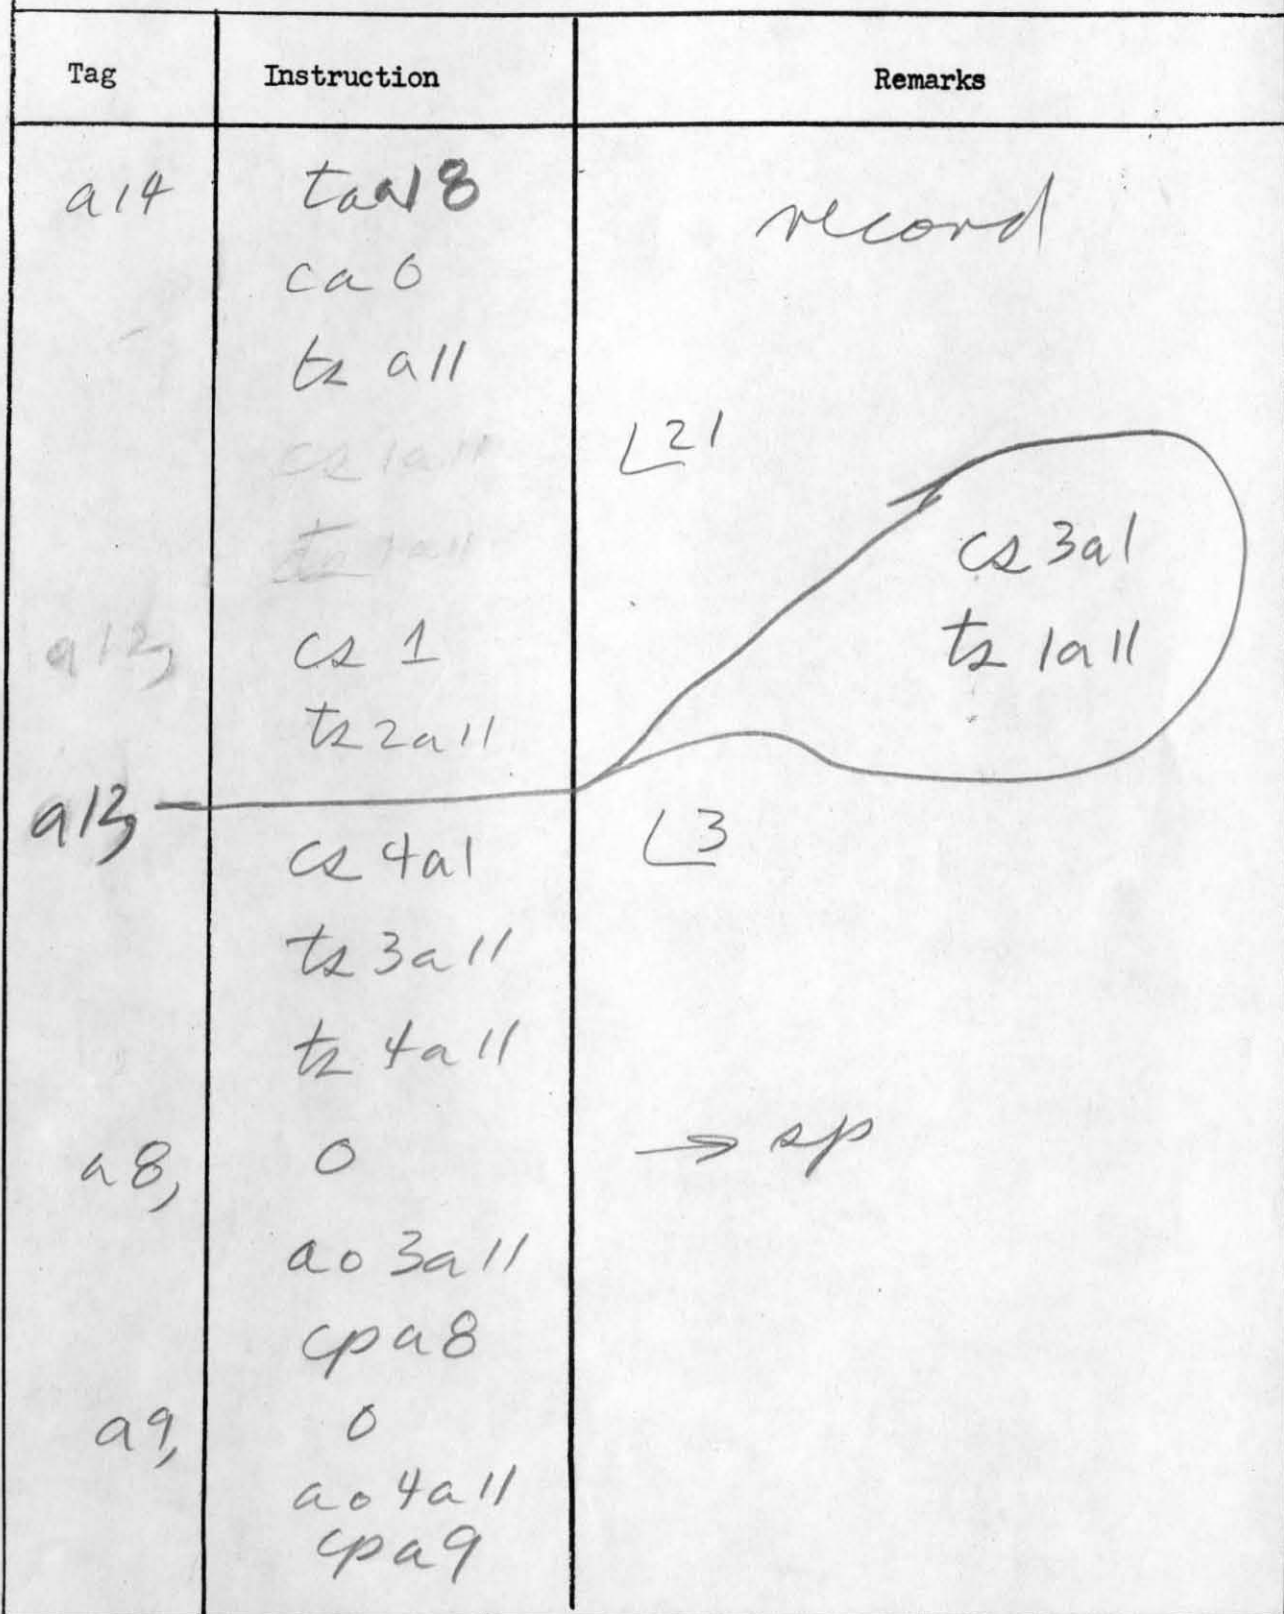 Tag Instruction Remarks
a14 ta a18 record
ca 0
ts a11
cs 1a11 ⌊21
ts 1a11
cs 3a1
ts 1a11
a12, cs 1
ts 2a11
a12,
cs 4a1 ⌊3
ts 3a11
ts 4a11
a8, 0 → sp
ao 3a11
cp a8
a9, 0
ao 4a11
cp a9